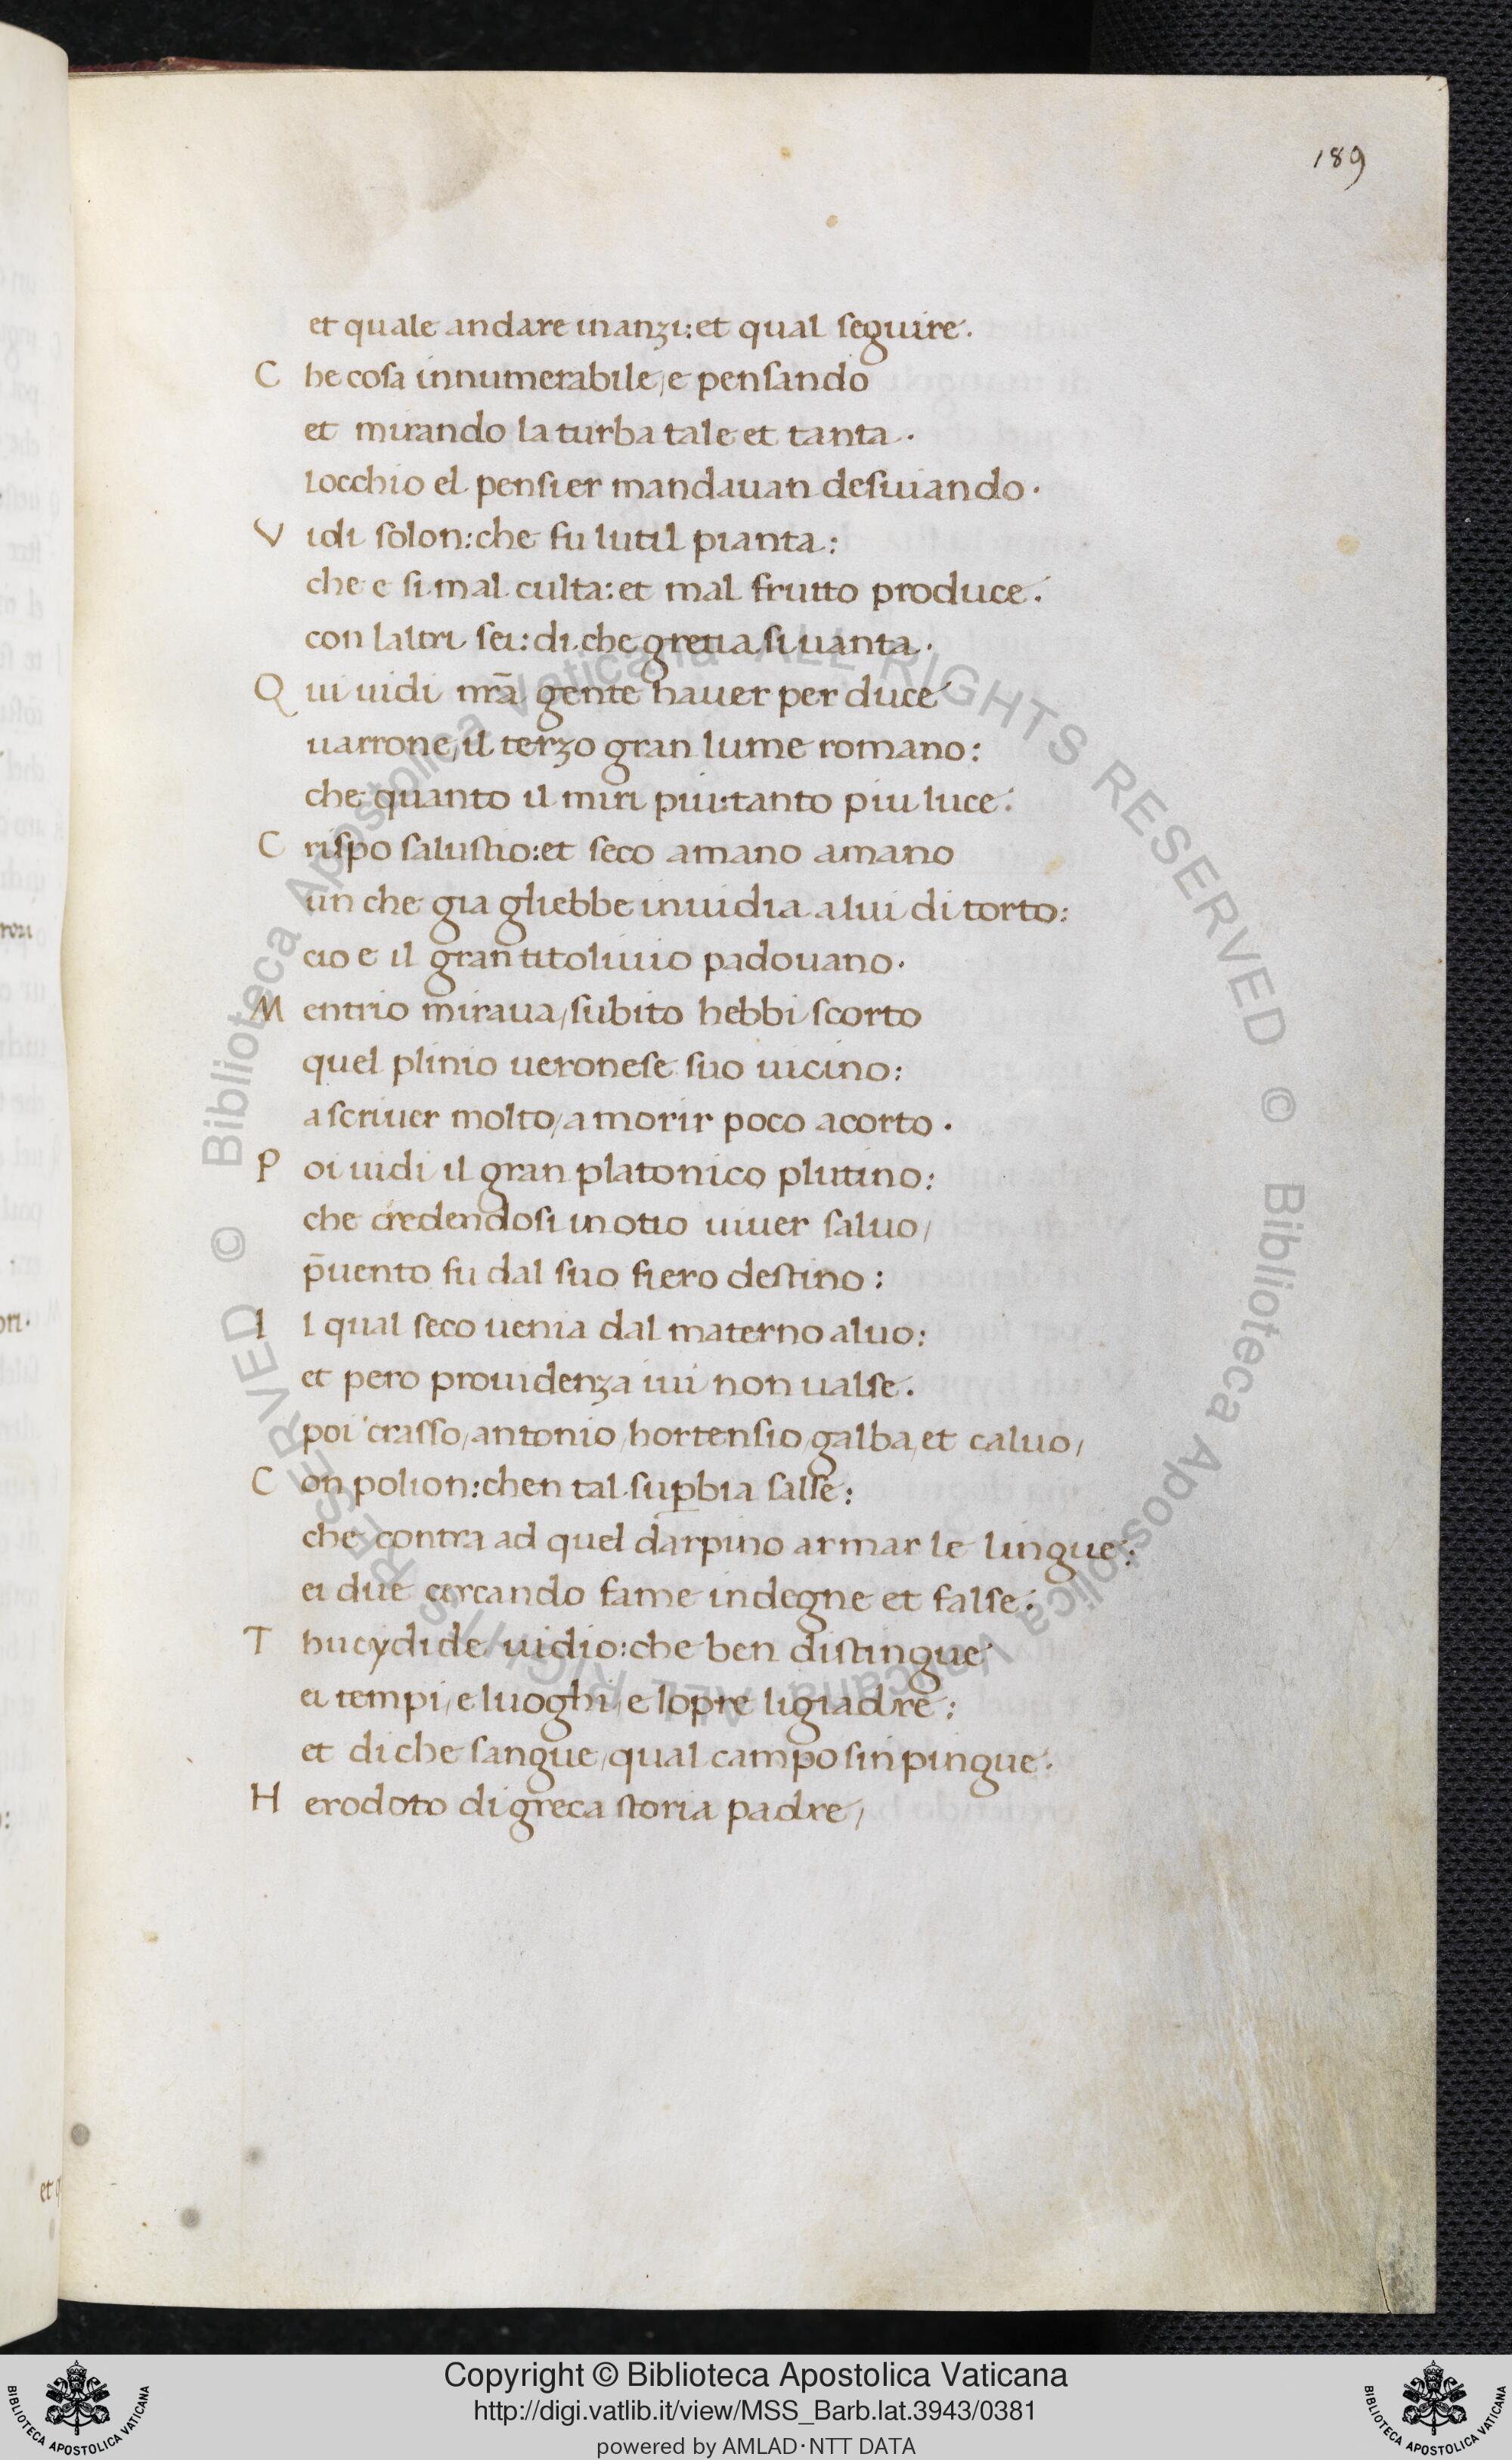 189
et quale andare inanzi: et qual seguire.
C he cosa innumerabile, e pensando
et mirando la turba tale et tanta.
locchio el pensier mandauan desuiando.
V idi solon: che fu lutil pianta:
che e si mal culta: et mal frutto produce.
con laltri sei: di che gretia si uanta.
Q ui uidi nrã gente hauer per duce
uarrone, il terzo gran lume romano:
che quanto il miri piu: tanto piu luce.
C rispo salustio: et seco amano amano
un che gia gliebbe inuidia a lui di torto:
cio e il gran titoliuio padouano.
M entrio miraua, subito hebbi scorto
quel plinio ueronese suo uicino:
a scriuer molto, a morir poco acorto.
P oi uidi il gran platonico plutino:
che credendosi in otio uiuer saluo,
p̄uento fu dal suo fiero destino:
I l qual seco uenia dal materno aluo:
et pero prouidenza iui non ualse.
poi crasso, antonio, hortensio, galba, et caluo,
C on polion: chen tal sup̱bia salse:
che contra ad quel darpino armar le lingue:
ei due cercando fame indegne et false.
T hucydide uidio: che ben distingue
ei tempi, e luoghi, e lopre ligiadre:
et di che sangue, qual campo sinpingue.
H erodoto di greca storia padre,
Copyright © Biblioteca Apostolica Vaticana
http://digi.vatlib.it/view/MSS_Barb.lat.3943/0381
powered by AMLAD·NTT DATA
BIBLIOTECA APOSTOLICA VATICANA
BIBLIOTECA APOSTOLICA VATICANA
© Biblioteca Apostolica Vaticana ALL RIGHTS RESERVED
© Biblioteca Apostolica Vaticana ALL RIGHTS RESERVED